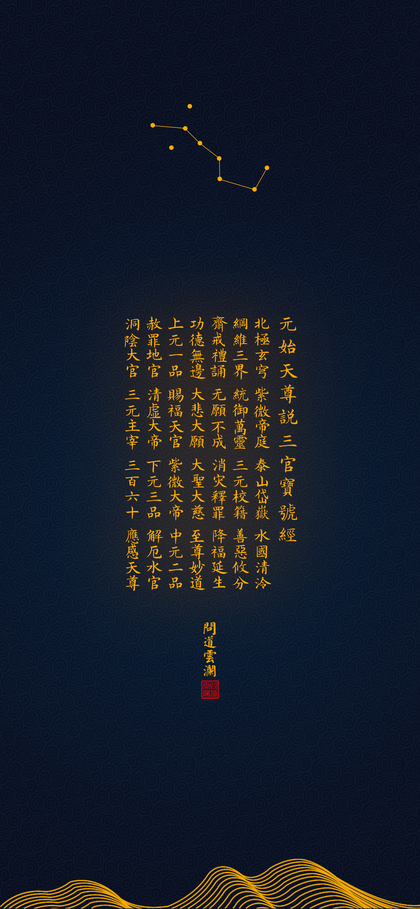 元始天尊説三官寶號經
北極玄穹 紫微帝庭 泰山岱嶽 水國清泠
綱維三界 統御萬靈 三元校籍 善惡攸分
齋戒禮誦 元願不成 消灾釋罪 降福延生
功德無邊 大悲大願 大聖大慈 至尊妙道
上元一品 賜福天官 紫微大帝 中元二品
赦罪地官 清虛大帝 下元三品 解厄水官
洞陰大官 三元主宰 三百六十 應感天尊
問道雲瀾